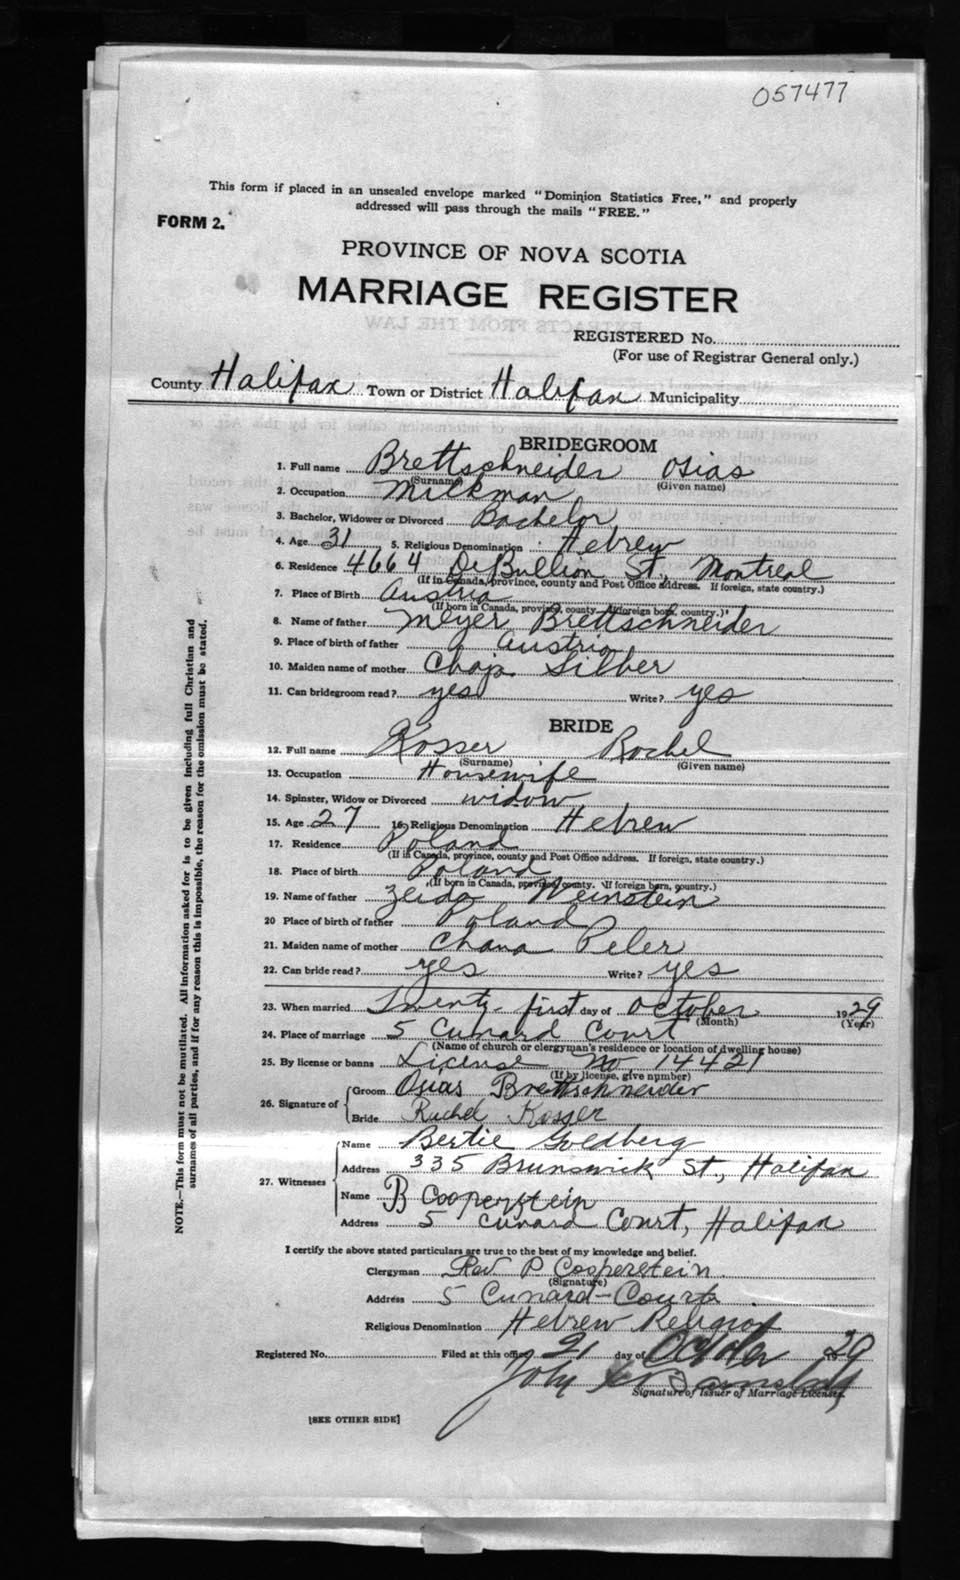 057477
This form if placed in an unsealed envelope marked "Dominion Statistics Free," and properly
addressed will pass through the mails "FREE."
FORM 2.
PROVINCE OF NOVA SCOTIA
MARRIAGE REGISTER
REGISTERED No.
(For use of Registrar General only.)
County Halifax Town or District Halifax Municipality
BRIDEGROOM
1. Full name Brettschneider Osias
(Surname) (Given name)
2. Occupation Milkman
3. Bachelor, Widower or Divorced Bachelor
4. Age 31 5. Religious Denomination Hebrew
6. Residence 4664 DeBullion St, Montreal
(If in Canada, province, county and Post Office address. If foreign, state country.)
7. Place of Birth Austria
(If born in Canada, province, county. If foreign born, country.)
8. Name of father Meyer Brettschneider
9. Place of birth of father Austria
10. Maiden name of mother Chaja Silber
11. Can bridegroom read? yes Write? yes
BRIDE
12. Full name Kosser Rochel
(Surname) (Given name)
13. Occupation Housewife
14. Spinster, Widow or Divorced widow
15. Age 27 16. Religious Denomination Hebrew
17. Residence Poland
(If in Canada, province, county and Post Office address. If foreign, state country.)
18. Place of birth Poland
(If born in Canada, province, county. If foreign born, country.)
19. Name of father Zeida Weinstein
20 Place of birth of father Poland
21. Maiden name of mother Chana Peler
22. Can bride read? yes Write? yes
23. When married Twenty-first day of October 1929
(Month) (Year)
24. Place of marriage 5 Cunard Court
(Name of church or clergyman's residence or location of dwelling house)
25. By license or banns License no 14421
(If by license, give number)
26. Signature of Groom Osias Brettschneider
Bride Ruchel Kosser
27. Witnesses
Name Bertie Goldberg
Address 335 Brunswick St., Halifax
Name B Cooperstein
Address 5 Cunard Court, Halifax
I certify the above stated particulars are true to the best of my knowledge and belief.
Clergyman Rev P Cooperstein
(Signature)
Address 5 Cunard-Court
Religious Denomination Hebrew Religion
Registered No. Filed at this office 21 day of October 1929
John
Signature of Issuer of Marriage Licenses.
[SEE OTHER SIDE]
NOTE.—This form must not be mutilated. All information asked for is to be given including full Christian and
surnames of all parties, and if for any reason this is impossible, the reason for the omission must be stated.